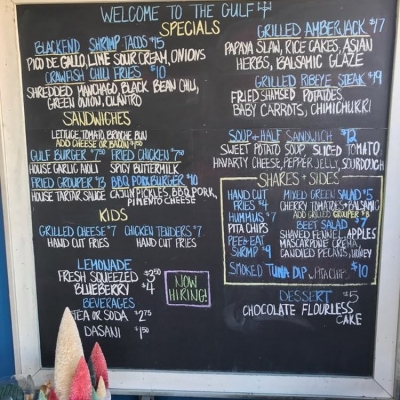 WELCOME TO THE GULF
SPECIALS
BLACKEND SHRIMP TACOS $15
PICO DE GALLO, LIME SOUR CREAM, ONIONS
CRAWFISH CHILI FRIES $10
SHREDDED MANCHAGO, BLACK BEAN CHILI,
GREEN ONION, CILANTRO
SANDWICHES
LETTUCE, TOMATO, BRIOCHE BUN
ADD CHEESE OR BACON $1.00
GULF BURGER $7.50 FRIED CHICKEN $7.50
HOUSE GARLIC AIOLI SPICY BUTTERMILK
FRIED GROUPER $13 BBQ PORKBURGER $10
HOUSE TARTAR SAUCE CAJUN PICKLES, BBQ PORK,
PIMENTO CHEESE
KIDS
GRILLED CHEESE $7 CHICKEN TENDERS $7
HAND CUT FRIES HAND CUT FRIES
LEMONADE
FRESH SQUEEZED $3.50
BLUEBERRY $4
BEVERAGES
TEA OR SODA $2.75
DASANI $1.50
NOW
HIRING!
GRILLED AMBERJACK $17
PAPAYA SLAW, RICE CAKES, ASIAN
HERBS, BALSAMIC GLAZE
GRILLED RIBEYE STEAK $19
FRIED SMASHED POTATOES,
BABY CARROTS, CHIMICHURRI
SOUP + HALF SANDWICH $12
SWEET POTATO SOUP, SLICED TOMATO,
HAVARTY CHEESE, PEPPER JELLY, SOURDOUGH
SHARES + SIDES
HAND CUT
FRIES $4
HUMMUS $7
PITA CHIPS
PEEL + EAT
SHRIMP $9
MIXED GREEN SALAD $5
CHERRY TOMATOES + BALSAMIC
ADD GRILLED GROUPER $8
BEET SALAD $7
SHAVED FENNEL, APPLES
MASCARPONE CREMA,
CANDIED PECANS, HONEY
SMOKED TUNA DIP W/ PITA CHIPS $10
DESSERT $5
CHOCOLATE FLOURLESS
CAKE